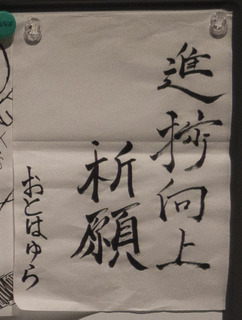 進捗向上
祈願
おとはゆら